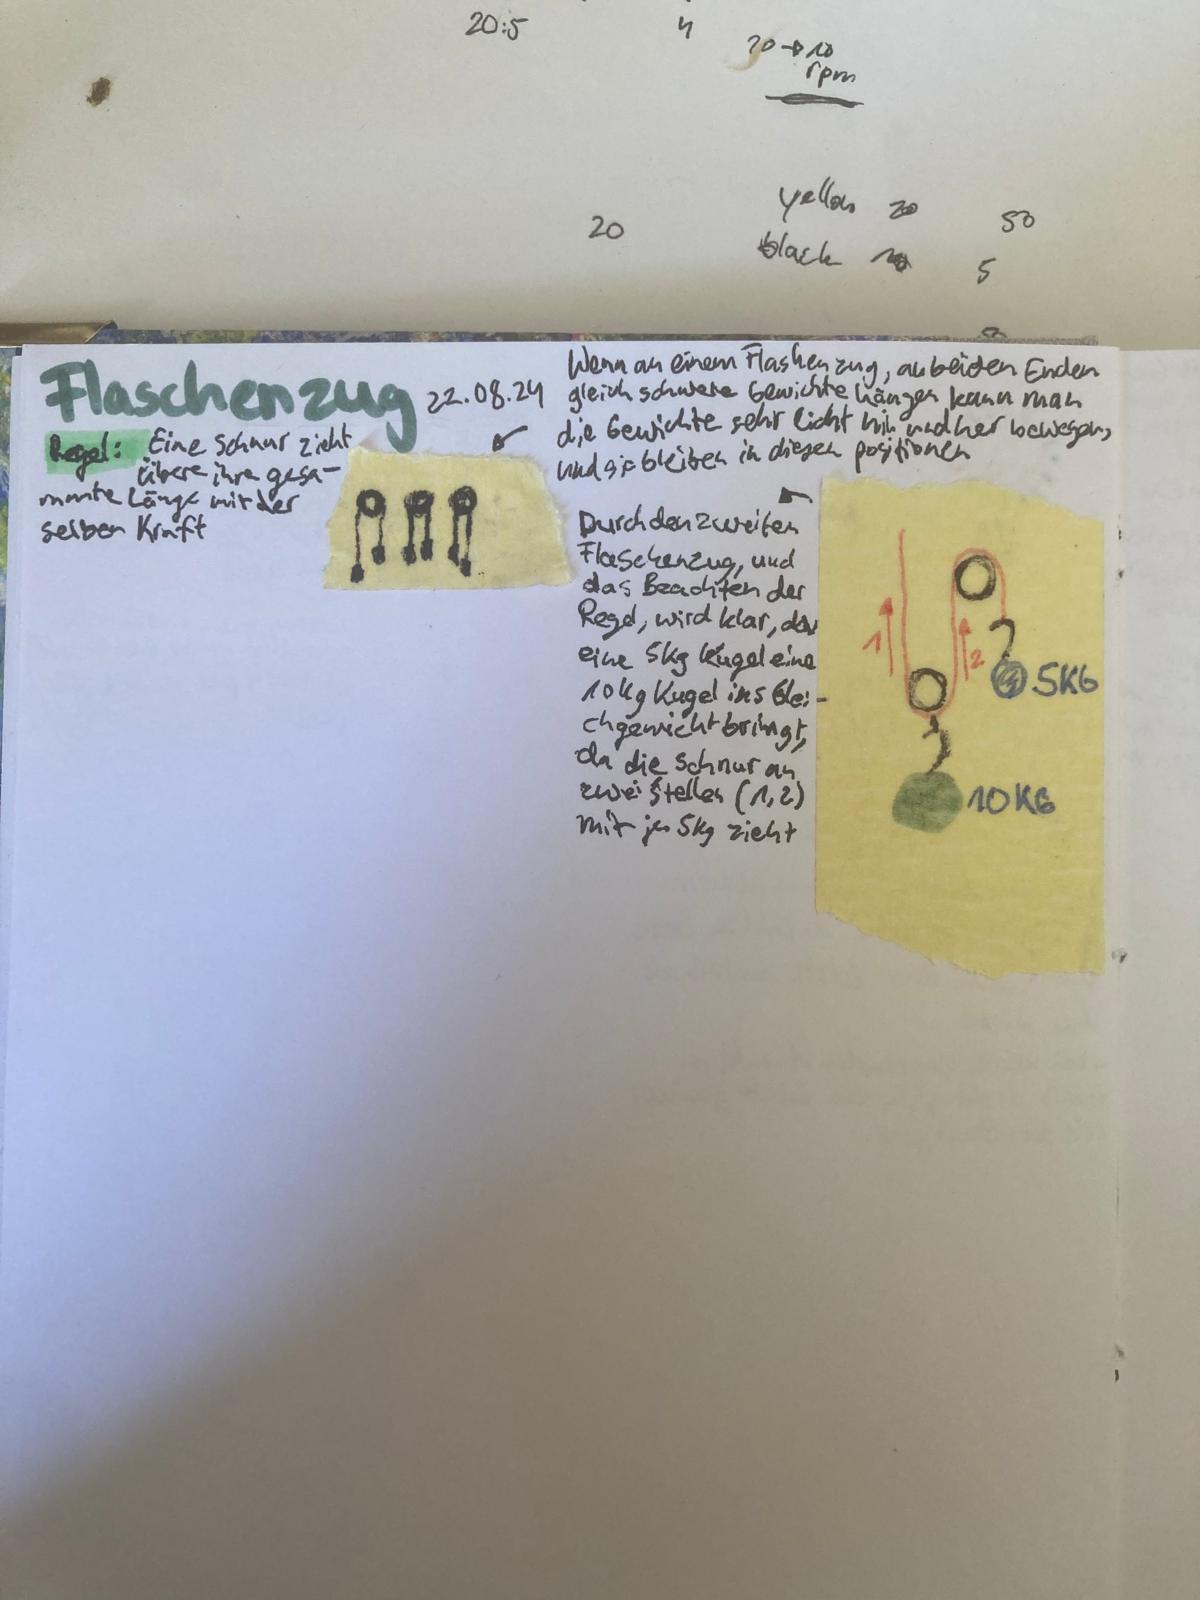 20:5
4
20 → 10
rpm
yellow 20 50
20
black 10 5
Flaschenzug 22.08.24
Regel: Eine Schnur zieht
übere ihre gesa-
mmte Länge mit der
selben Kraft
Wenn an einem Flashenzug, an beiden Enden
gleich schwere Gewichte hängen kann man
die Gewichte sehr licht hin und her bewegen,
und sie bleiben in diesen positionen
Durch den zweiten
Flaschenzug, und
das Beachten der
Regel, wird klar, das
eine 5kg Kugel eine
10kg Kugel ins Glei-
chgewicht bringt,
da die Schnur an
zwei Stellen (1,2)
mit je 5kg zieht
1
2
5KG
10KG